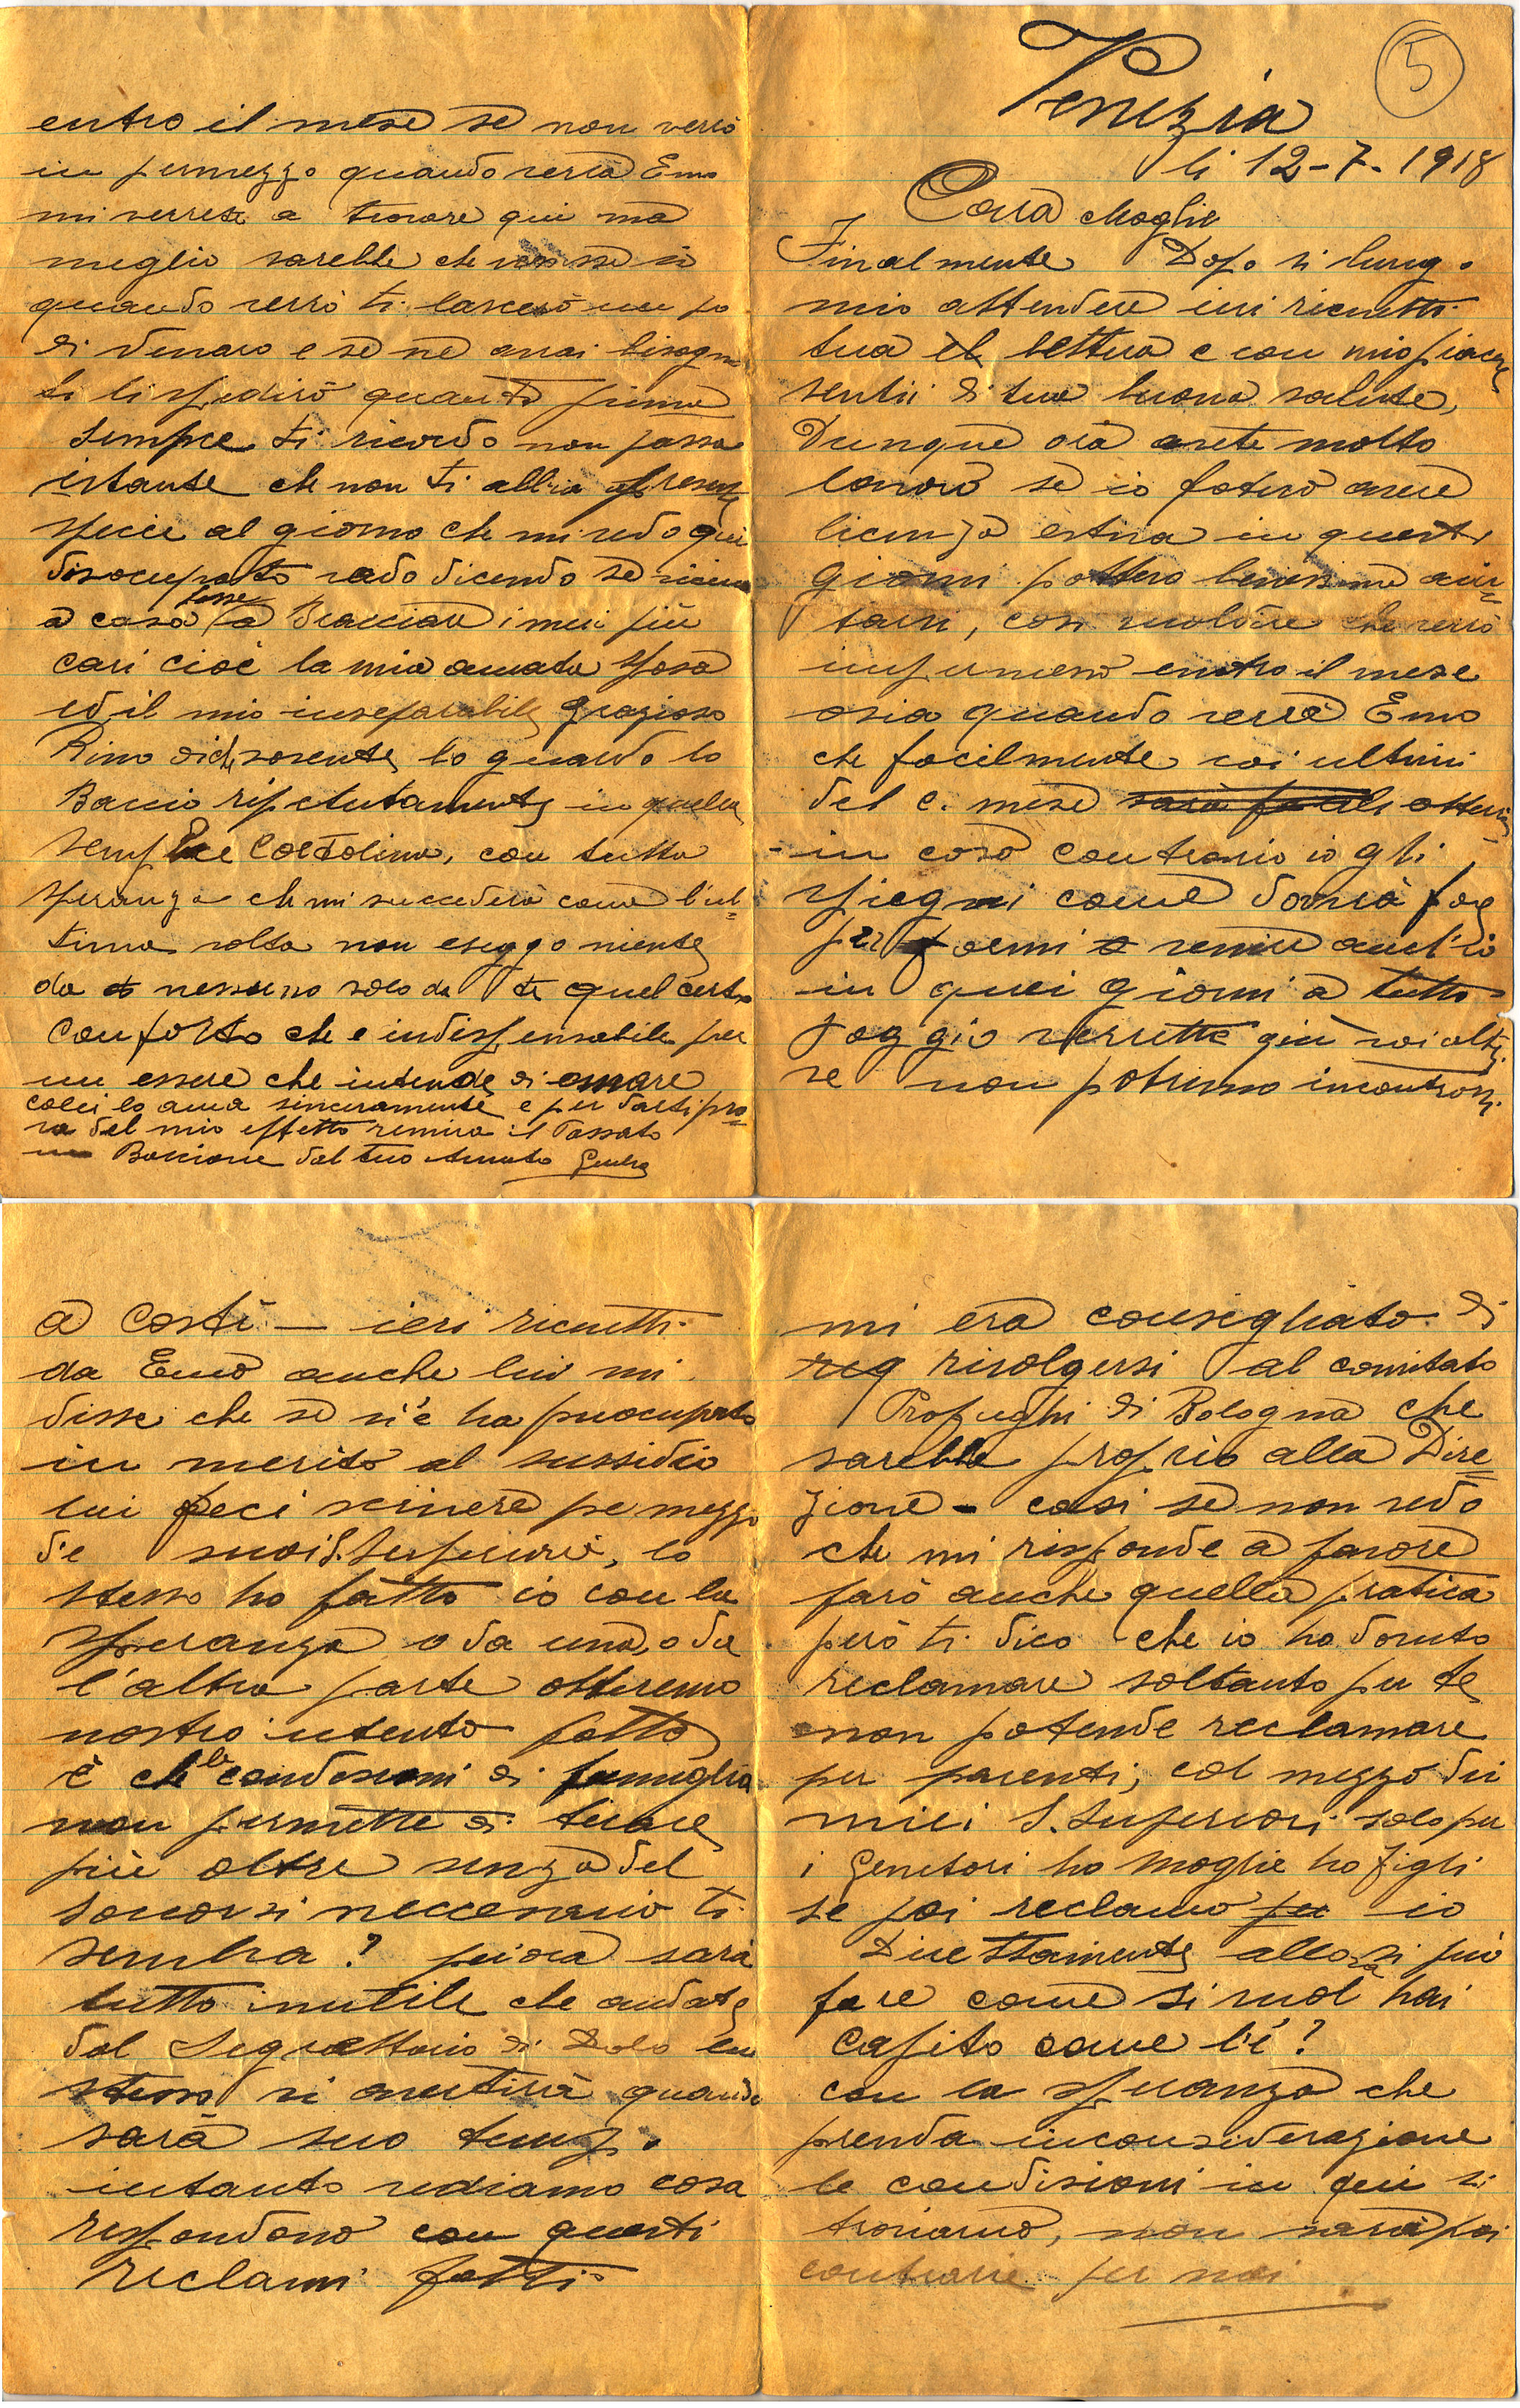 5
Venezia
li 12-7-1918
Cara Moglie
Finalmente Dopo si lungo
mio attendere ieri ricevetti
tua lettera e con mio piacere
sentii di tua buona salute,
Dunque ora avete molto
lavoro se io poterò avere
licenza estiva in questi
giorni pottero benissimo aiu=
tarvi, con che verrò
in permesso entro il mese
osia quando verrà Emo
che facilmente voi ultimi
del c. mese sarà facile
in caso contrario io gli
spiegai come dovrà fare
per farmi venire anch'io
in quei giorni a tutto
verrette giù voi altri
se non potremo incontrarsi
a Costì — ieri ricevetti
da Emo anche lui mi
disse che se si è ha preocupato
in merito al sussidio
lui feci scrivere pe mezzo
die suoi S. Superiori, lo
stesso ho fatto io con la
speranza o da una, o da
l'altra parte otteremo
nostro intento fatto
è che le condesioni di famiglia
non permette di tirare
più oltre senza del
soccorsi neccesario ti
sembra? sarà
tutto inutile che andate
dal Segrettario di Dolo lui
stesso vi avertirà quando
sarà suo tempo
intanto vediamo cosa
respondono con questi
reclami fatti
mi era consegliato di
reg rivolgersi al comitato
Profughi di Bologna che
sarebbe proprio alla Dire=
zione - cosi se non vedo
che mi risponde a favore
farò anche quella pratica
però ti dico che io ho dovuto
reclamare soltanto per te
non potende reclamare
per parenti, col mezzo dei
miei S. Superiori solo per
i genitori ho moglie ho figli
se poi reclamo per io
Direttamente allora si può
fare come si vuol hai
capito come l'è?
con la speranza che
prenda inconsiderazione
le condisioni in qui si
troviamo, non sarà poi
contrarie per noi
entro il mese se non verrò
in permezzo quando verrà Emo
mi verrete a trovare qui ma
meglio sarebbe che venisse io
quando verrò ti lascerò un po
di denaro e se ne avrai bisogno
ti li spedirò quanto prima
sempre ti ricordo non passa
istante che non ti abbia presente
specie al giorno che mi vedo qui
disocupato vado dicendo se
a casa fosse a Bracciare i miei più
cari cioè la mia amata sposa
ed il mio inseparabile grazioso
Rino diche sovente lo guardo lo
Baccio ripetutamente in quella
semplice Cartolina, con tutta
speranza che mi succederà come l'ul=
tima volta non esiggo niente
da nessuno solo da te quel certo
conforto che e indispensabile per
un essere che intende di amare
colei lo ama sinceramente e per darti pro=
va del mio effetto remira il Passato
un Baccione dal tuo